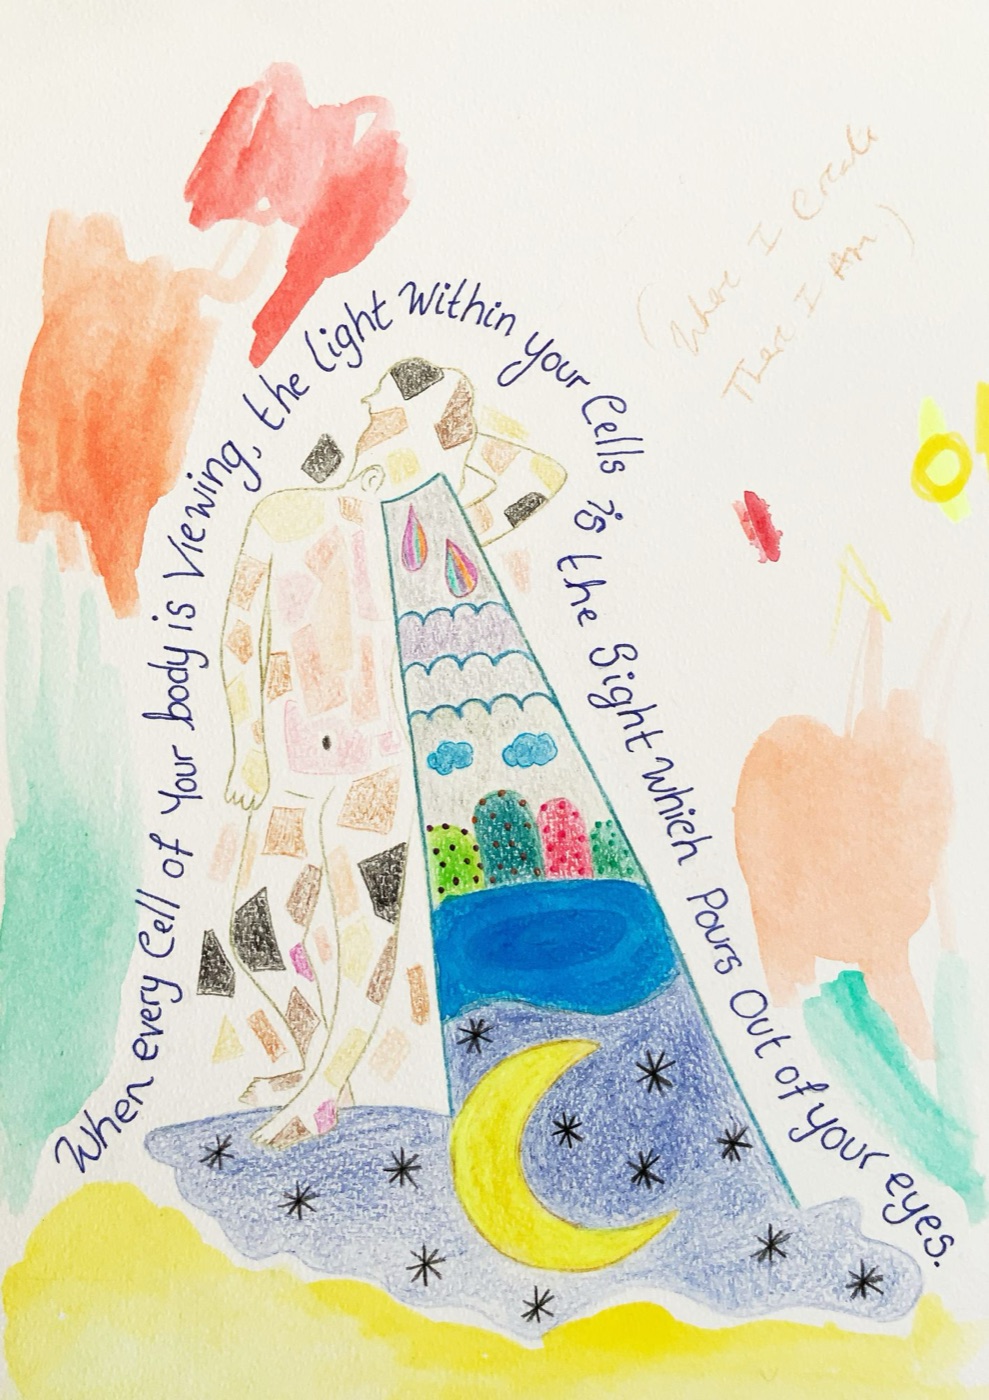 When every Cell of Your body is Viewing, the Light Within your Cells is the Sight which Pours Out of your eyes.
(Where I Create
There I Am)